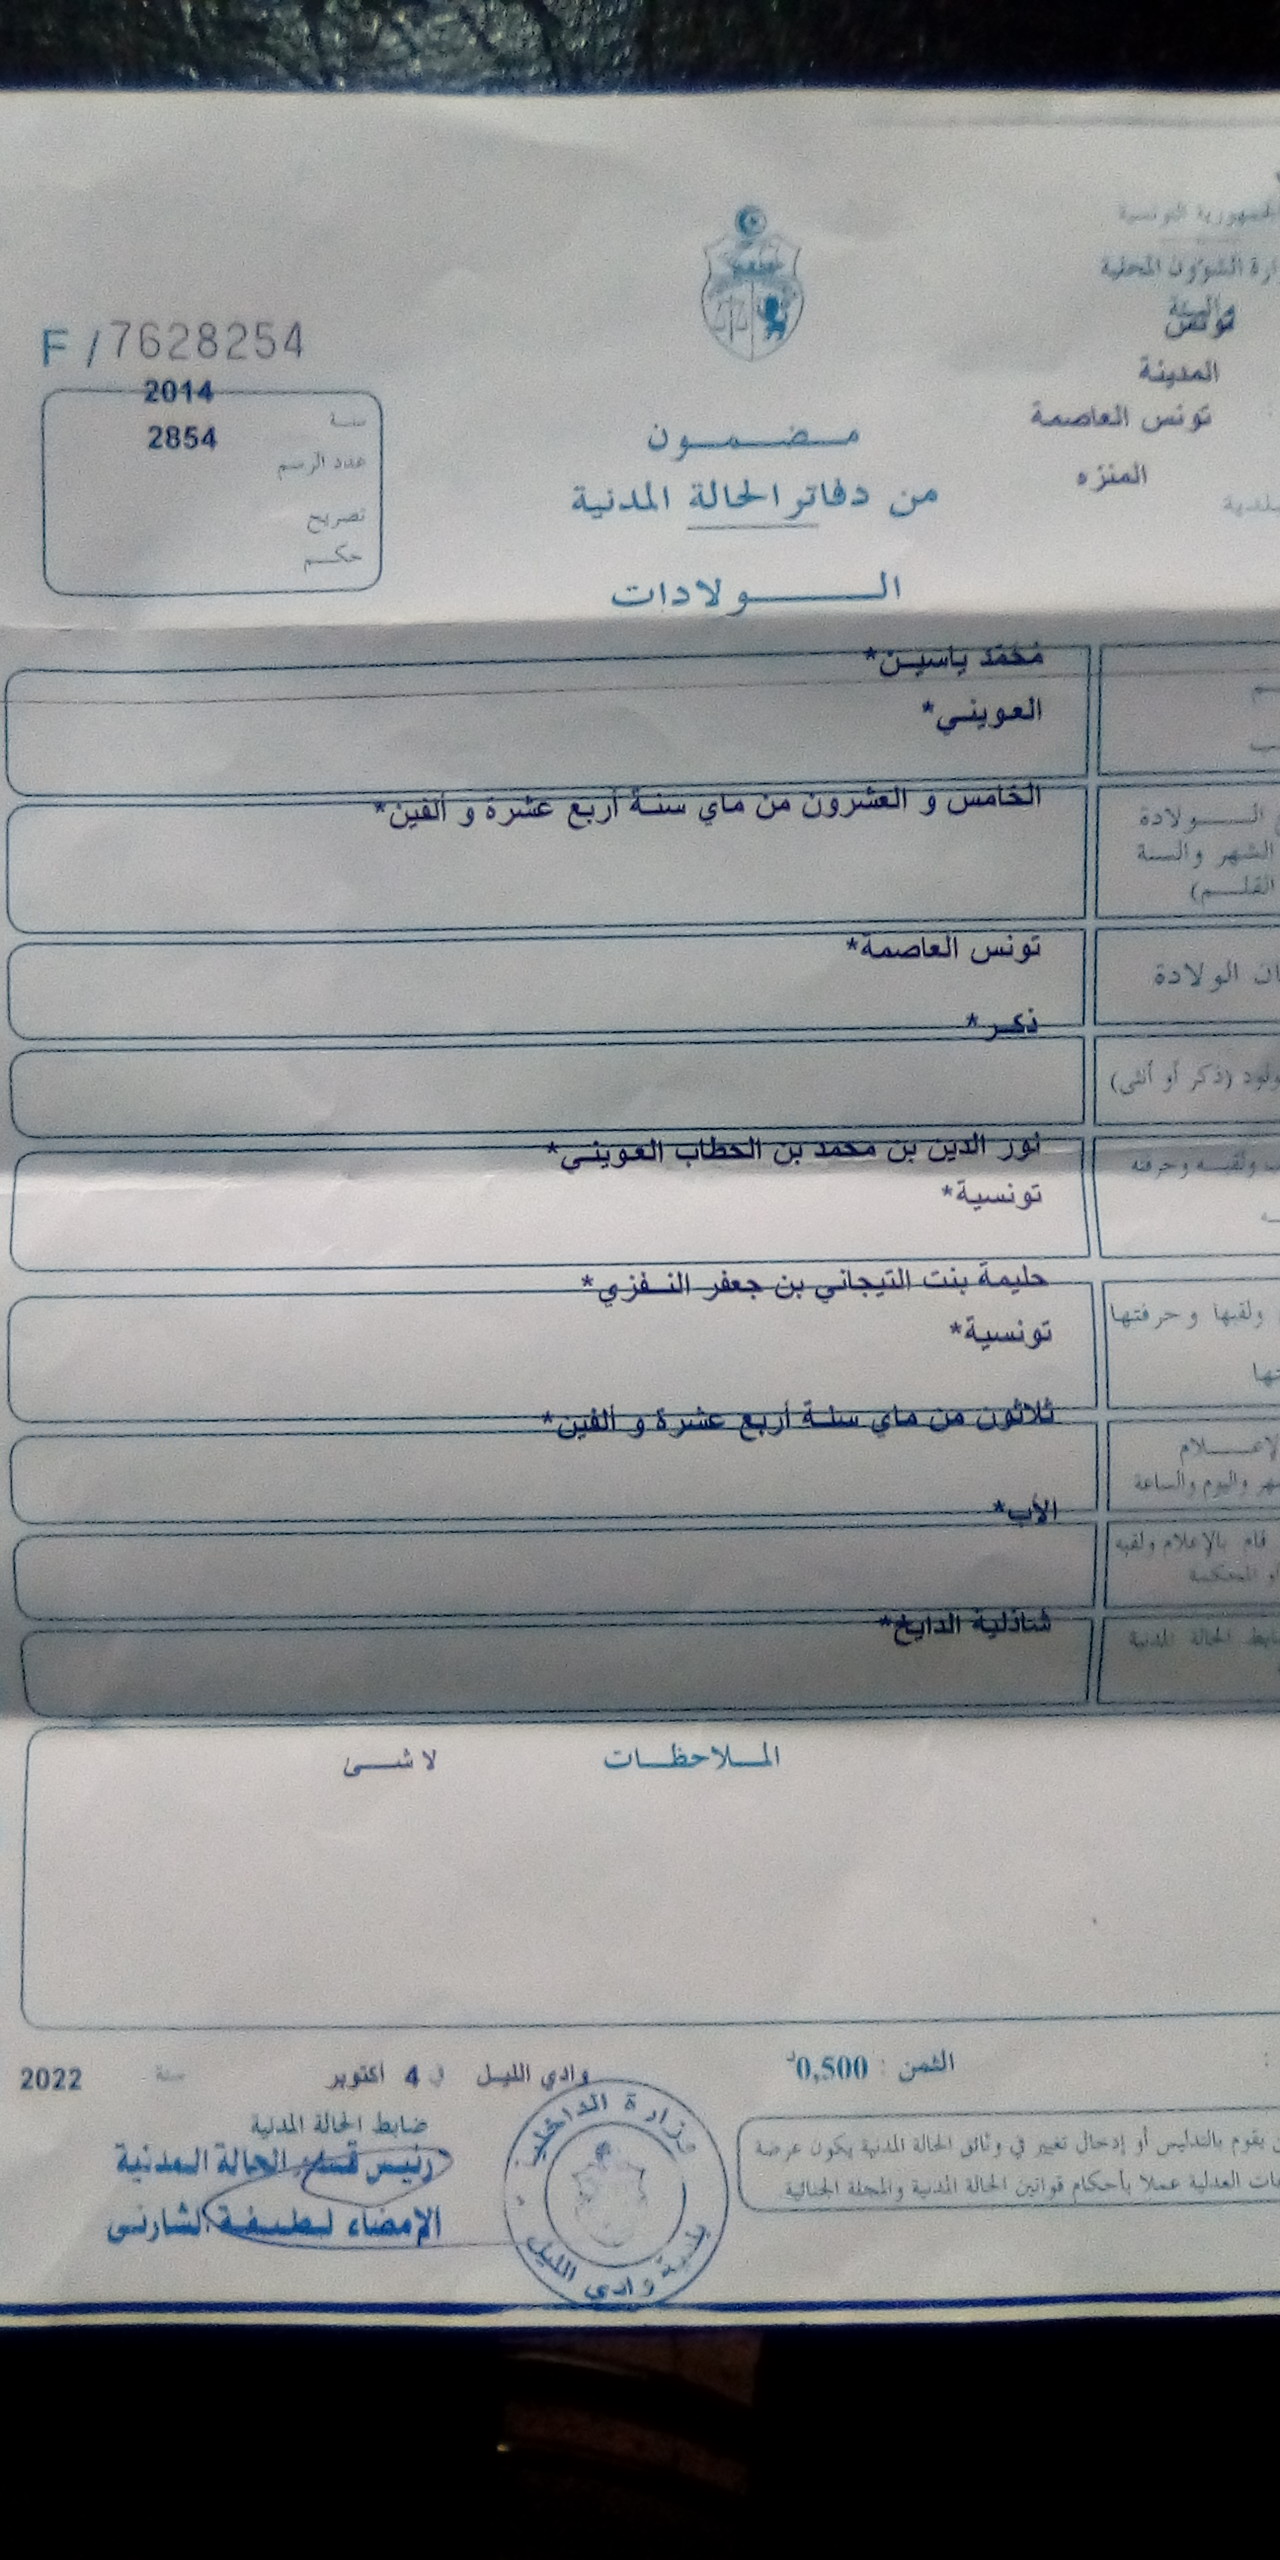 الجمهورية التونسية
الشؤون المحلية
والبيئة
تونس
المدينة
تونس العاصمة
المنزه
F / 7628254
2014 سنة
2854
عدد الرسم
تصريح
حكم
مضمون
من دفاتر الحالة المدنية
الولادات
محمد ياسين*
العويني*
الخامس و العشرون من ماي سنة أربع عشرة و ألفين*
الولادة
الشهر والسنة
القلم)
تونس العاصمة*
الولادة
ذكر*
(ذكر أو أنثى)
نور الدين بن محمد بن الحطاب العويني*
ولقبه وحرفته
تونسية*
حليمة بنت التيجاني بن جعفر النفزي*
ولقبها وحرفتها
تونسية*
ثلاثون من ماي سنة أربع عشرة و ألفين*
واليوم والساعة
الأب*
قام بالإعلام ولقبه
أو المحكمة
شاذلية الدايخ*
الحالة المدنية
الملاحظات لا شى
الثمن : 0,500د
وادي الليل في 4 أكتوبر سنة 2022
ضابط الحالة المدنية
رئيس قسم الحالة المدنية
الإمضاء لطيفة الشارني
وزارة الداخلية
بلدية وادي الليل
يقوم بالتدليس أو إدخال تغيير في وثائق الحالة المدنية يكون عرضة
العدلية عملا بأحكام قوانين الحالة المدنية والمجلة الجنائية